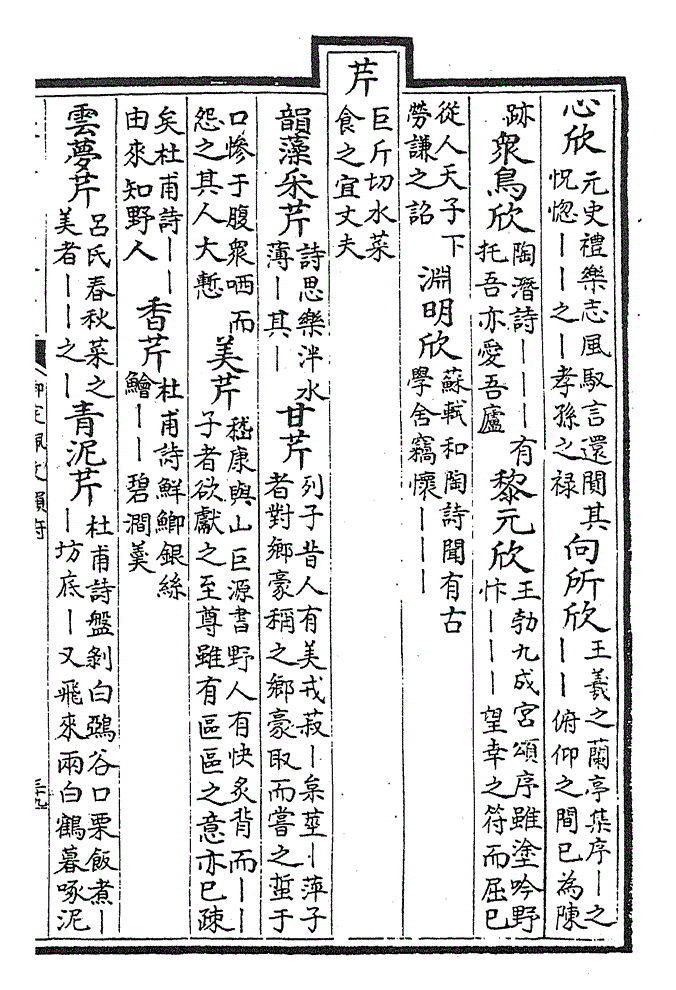 心欣元史禮樂志風馭言還閴其怳惚丨丨之丨孝孫之禄向所欣王羲之蘭亭集序丨之丨丨俯仰之間已為陳
跡衆鳥欣陶潛詩丨丨丨有托吾亦愛吾廬黎元欣王勃九成宮頌序雖塗吟野忭丨丨丨望幸之符而屈已
從人天子下勞謙之詔淵明欣蘇軾和陶詩聞有古學舍竊懷丨丨丨
芹巨斤切水菜食之宜丈夫
韻藻采芹詩思樂泮水薄丨其丨甘芹列子昔人有美戎菽丨枲莖丨萍子者對鄉豪稱之鄉豪取而嘗之蜇于
口慘于腹衆哂而怨之其人大慙美芹嵇康與山巨源書野人有快炙背而丨丨子者欲獻之至尊雖有區區之意亦已疎
矣杜甫詩丨丨由來知野人香芹杜甫詩鮮鯽銀絲鱠丨丨碧澗羹
雲夢芹呂氏春秋菜之美者丨丨之丨青泥芹杜甫詩盤剝白鴉谷口栗飯煮丨丨坊底丨又飛來兩白鶴暮啄泥